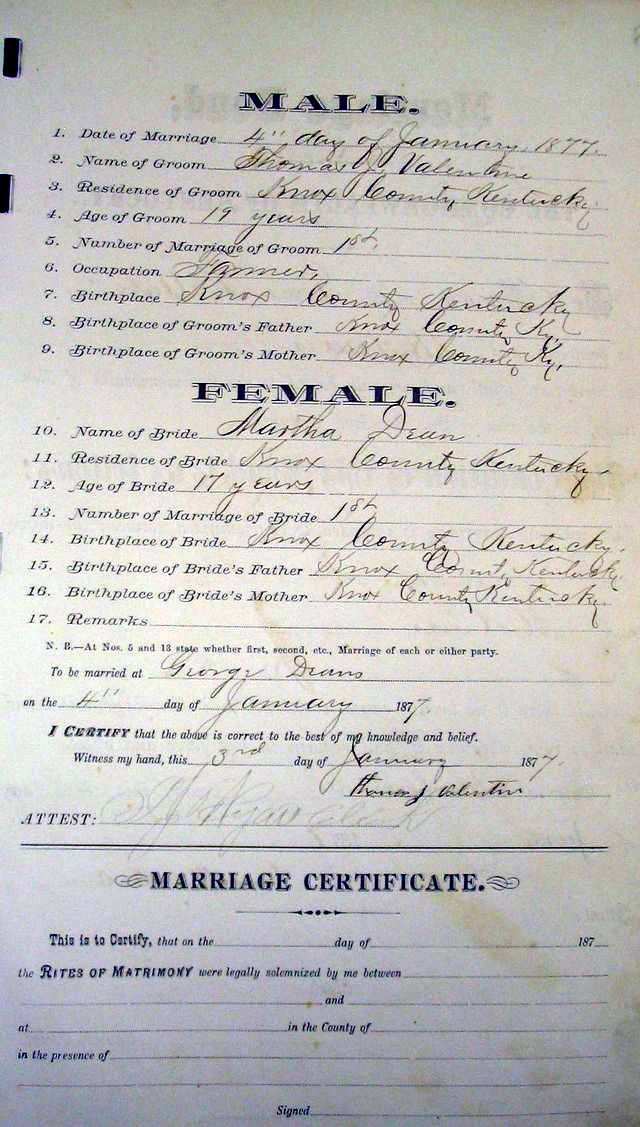 MALE.
1. Date of Marriage 4" day of January, 1877.
2. Name of Groom Thomas J Valentine
3. Residence of Groom Knox County Kentucky
4. Age of Groom 19 years
5. Number of Marriage of Groom 1st
6. Occupation Farmer,
7. Birthplace Knox County Kentucky
8. Birthplace of Groom's Father Knox County Ky.
9. Birthplace of Groom's Mother Knox County Ky,
FEMALE.
10. Name of Bride Martha Dean
11. Residence of Bride Knox County Kentucky
12. Age of Bride 17 years
13. Number of Marriage of Bride 1st
14. Birthplace of Bride Knox County Kentucky.
15. Birthplace of Bride's Father Knox County Kentucky
16. Birthplace of Bride's Mother Knox County Kentucky.
17. Remarks
N. B.—At Nos. 5 and 13 state whether first, second, etc., Marriage of each or either party.
To be married at George Deans
on the 4" day of January 1877.
I CERTIFY that the above is correct to the best of my knowledge and belief.
Witness my hand, this 3rd day of January 1877.
Thomas J Valentine
ATTEST: Clerk
MARRIAGE CERTIFICATE.
This is to Certify, that on the day of 187
the RITES OF MATRIMONY were legally solemnized by me between
and
at in the County of
in the presence of
Signed